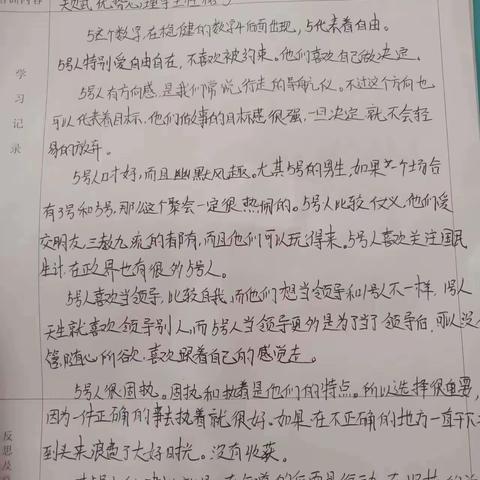 天赋优势心理学生命数字
5这个数字,在稳健的数字4后面出现,5代表着自由。
5号人特别爱自由自在,不喜欢被约束。他们喜欢自己做决定。
5号人有方向感,是我们常说行走的导航仪。不过这个方向也
可以代表着目标,他们做事的目标感很强,一旦决定就不会轻
易的放弃。
5号人口才好,而且幽默风趣。尤其5号的男生,如果某一个场合
有3号和5号,那么这个聚会一定很热闹的。5号人比较仗义,他们爱
交朋友,三教九流的都有,而且他们可以玩得来。5号人喜欢关注国民
生计,在政界也有很多5号人。
5号人喜欢当领导,比较自我,而他们想当领导和1号人不一样,1号人
天生就喜欢领导别人,而5号人当领导更多是为了当了领导后,可以没人
管,随心所欲,喜欢跟着自己的感觉走。
5号人很固执。固执和执着是他们的特点。所以选择很重要,
因为一件正确的事去执着就很好。如果在不正确的地方一直干下去
到头来浪费了大好时光。没有收获。
学习记录
反思及